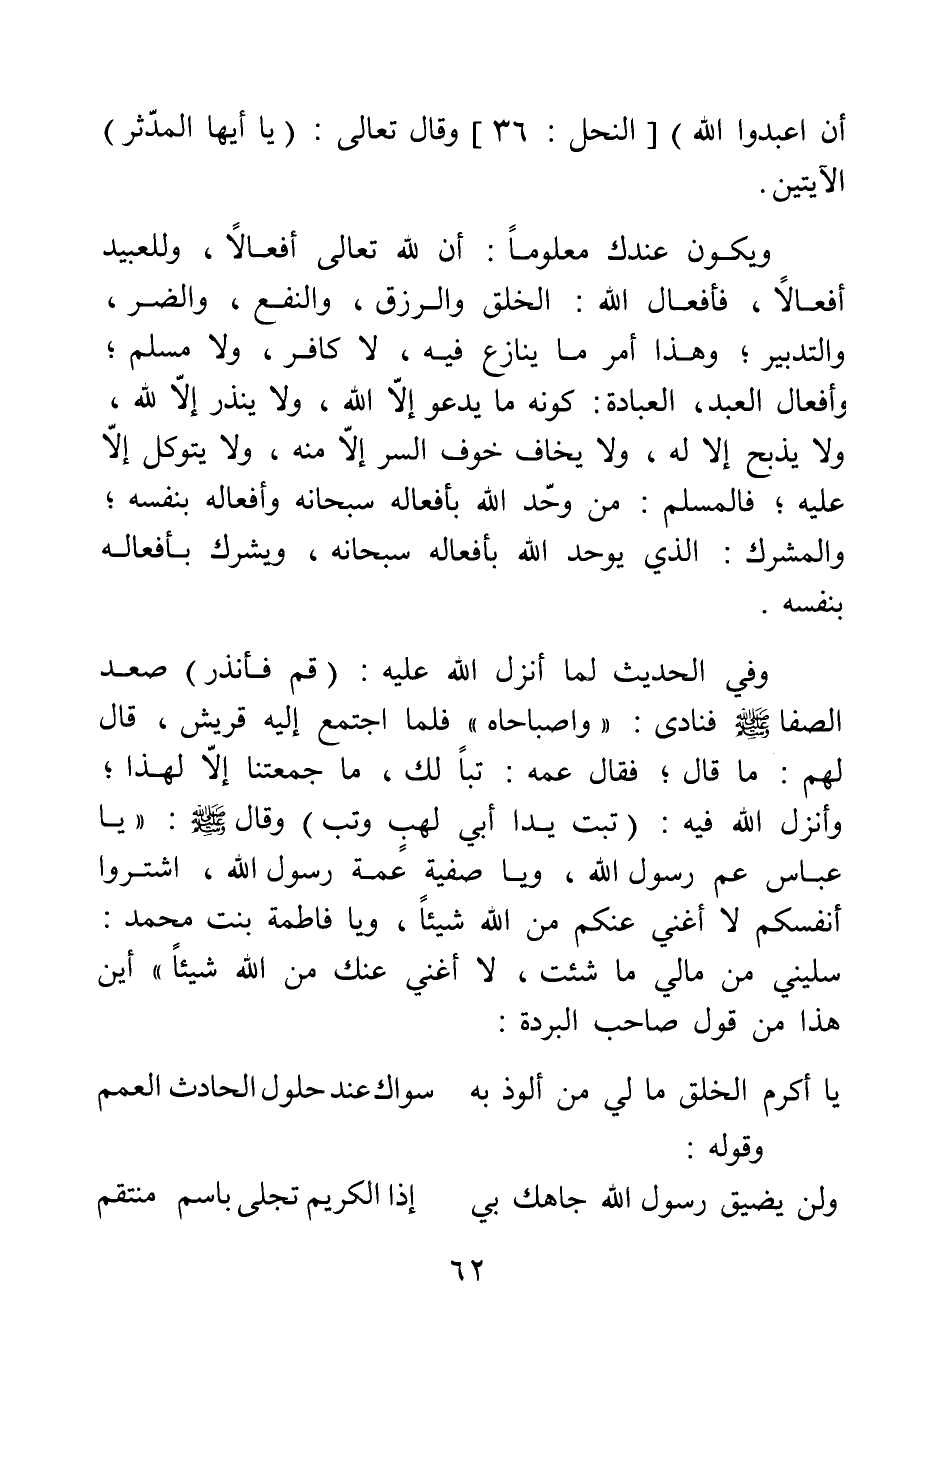 أن اعبدوا الله ) [ النحل : ٣٦ ] وقال تعالى : ( يا أيها المدّثر )
الآيتين .
ويكون عندك معلوماً : أن لله تعالى أفعالاً ، وللعبيد
أفعالاً ، فأفعال الله : الخلق والرزق ، والنفع ، والضر ،
والتدبير ؛ وهذا أمر ما ينازع فيه ، لا كافر ، ولا مسلم ؛
وأفعال العبد، العبادة: كونه ما يدعو إلاّ الله ، ولا ينذر إلاّ لله ،
ولا يذبح إلا له ، ولا يخاف خوف السر إلاّ منه ، ولا يتوكل إلاّ
عليه ؛ فالمسلم : من وحّد الله بأفعاله سبحانه وأفعاله بنفسه ؛
والمشرك : الذي يوحد الله بأفعاله سبحانه ، ويشرك بأفعاله
بنفسه .
وفي الحديث لما أنزل الله عليه : ( قم فأنذر ) صعد
الصفا ﷺ فنادى : « واصباحاه » فلما اجتمع إليه قريش ، قال
لهم : ما قال ؛ فقال عمه : تباً لك ، ما جمعتنا إلاّ لهذا ؛
وأنزل الله فيه : ( تبت يدا أبي لهبٍ وتب ) وقال ﷺ : « يا
عباس عم رسول الله ، ويا صفية عمة رسول الله ، اشتروا
أنفسكم لا أغني عنكم من الله شيئاً ، ويا فاطمة بنت محمد :
سليني من مالي ما شئت ، لا أغني عنك من الله شيئاً » أين
هذا من قول صاحب البردة :
يا أكرم الخلق ما لي من ألوذ به سواك عند حلول الحادث العمم
وقوله :
ولن يضيق رسول الله جاهك بي إذا الكريم تجلى باسم منتقم
٦٢